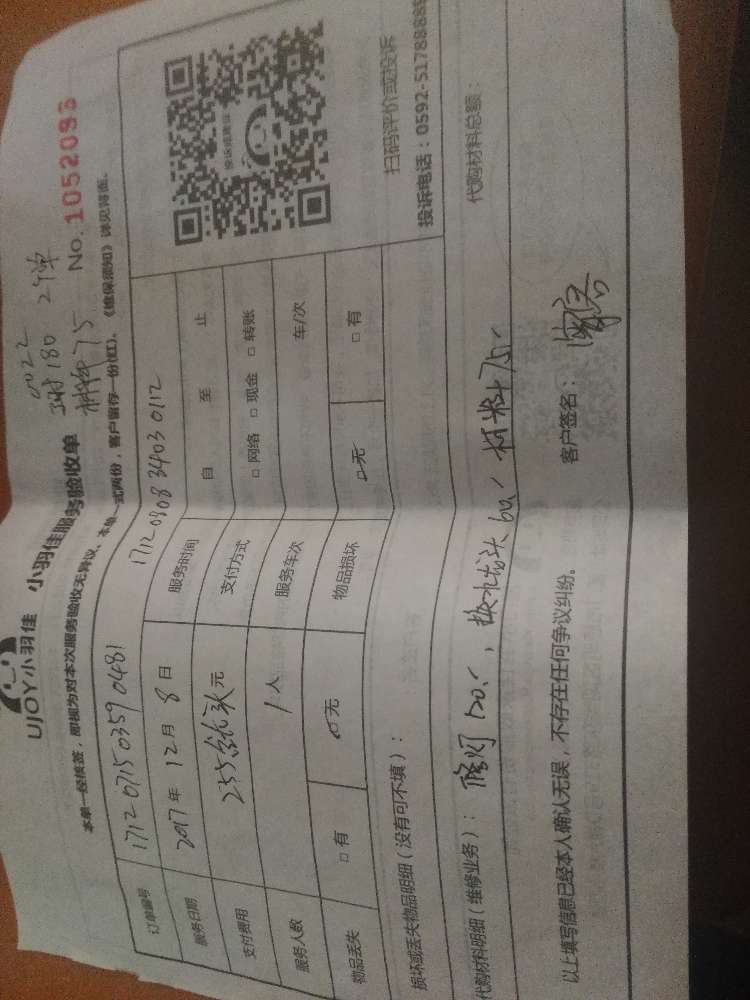 0022
工时180 2个单
材料75
UJOY小羽佳 小羽佳服务验收单 No.1052093
本单一经核签，即视为对本次服务验收无异议、本单一式两份，客户留存一份(红)。《维保须知》详见背面。
订单编号 1712071503590481 1712080834030112
服务日期 2017年12月8日 服务时间 自 至 止
支付费用 255 元 支付方式 □网络 □现金 □转账
服务人数 1人 服务车次 车/次
物品丢失 □有 □无 物品损坏 □无 □有
投诉找离我
扫码评价或投诉
投诉电话：0592-5178888
损坏或丢失物品明细（没有可不填）：
代购材料明细（维修业务）：修灯120、换水龙头60、材料75、 代购材料总额：
以上填写信息已经本人确认无误，不存在任何争议纠纷。 客户签名：